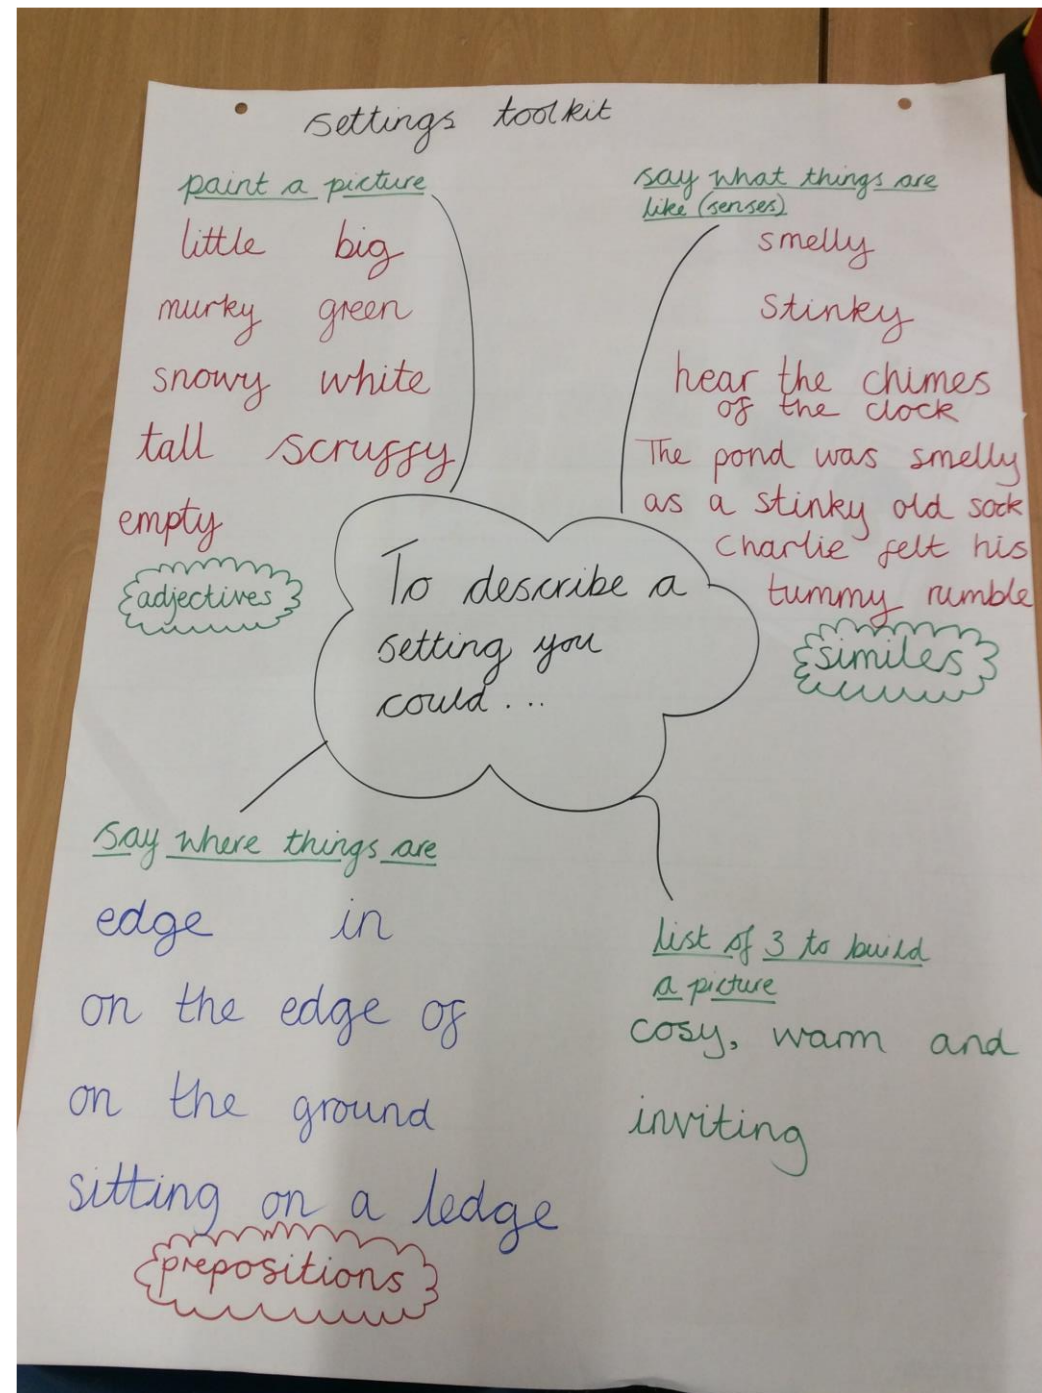 settings toolkit
paint a picture
little big
murky green
snowy white
tall scruffy
empty
adjectives
say what things are
like (senses)
smelly
stinky
hear the chimes
of the clock
The pond was smelly
as a stinky old sock
Charlie felt his
tummy rumble
similes
To describe a
setting you
could...
say where things are
edge in
on the edge of
on the ground
sitting on a ledge
prepositions
list of 3 to build
a picture
cosy, warm and
inviting